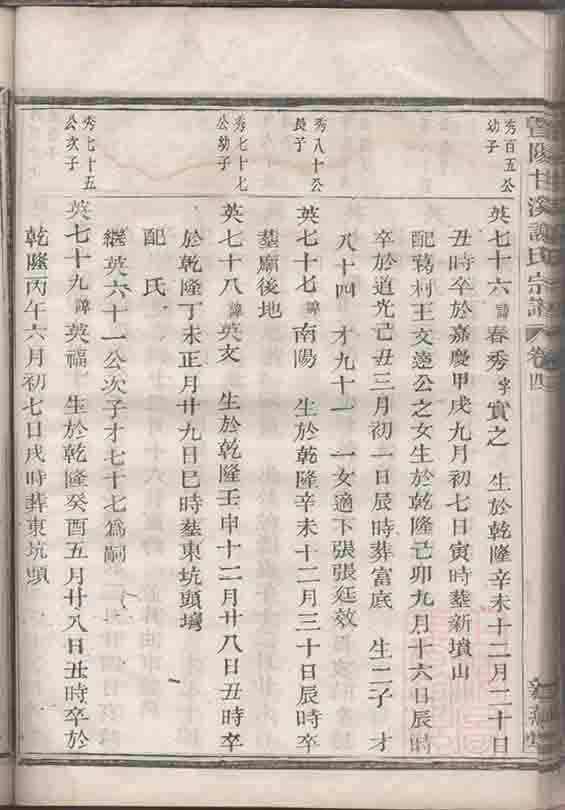 暨陽甘溪謝氏宗譜 卷四
秀百五公
幼子
英七十六諱春秀字實之 生於乾隆辛未十二月二十日
丑時卒於嘉慶甲戌九月初七日寅時塟新墳山
配蒍村王文達公之女生於乾隆己卯九月十六日辰時
卒於道光己丑三月初一日辰時葬富底 生二子 才
八十四 才九十一 一女適下張張廷效
秀八十公
長子
英七十七諱南陽 生於乾隆辛未十二月三十日辰時卒
塟廟後地
秀七十七
公幼子
英七十八諱英文 生於乾隆壬申十二月廿八日丑時卒
於乾隆丁未正月廿九日巳時塟東坑頭塆
配 氏
繼英六十一公次子才七十七爲嗣
秀七十五
公次子
英七十九諱英福 生於乾隆癸酉五月廿八日丑時卒於
乾隆丙午六月初七日戌時葬東坑頭